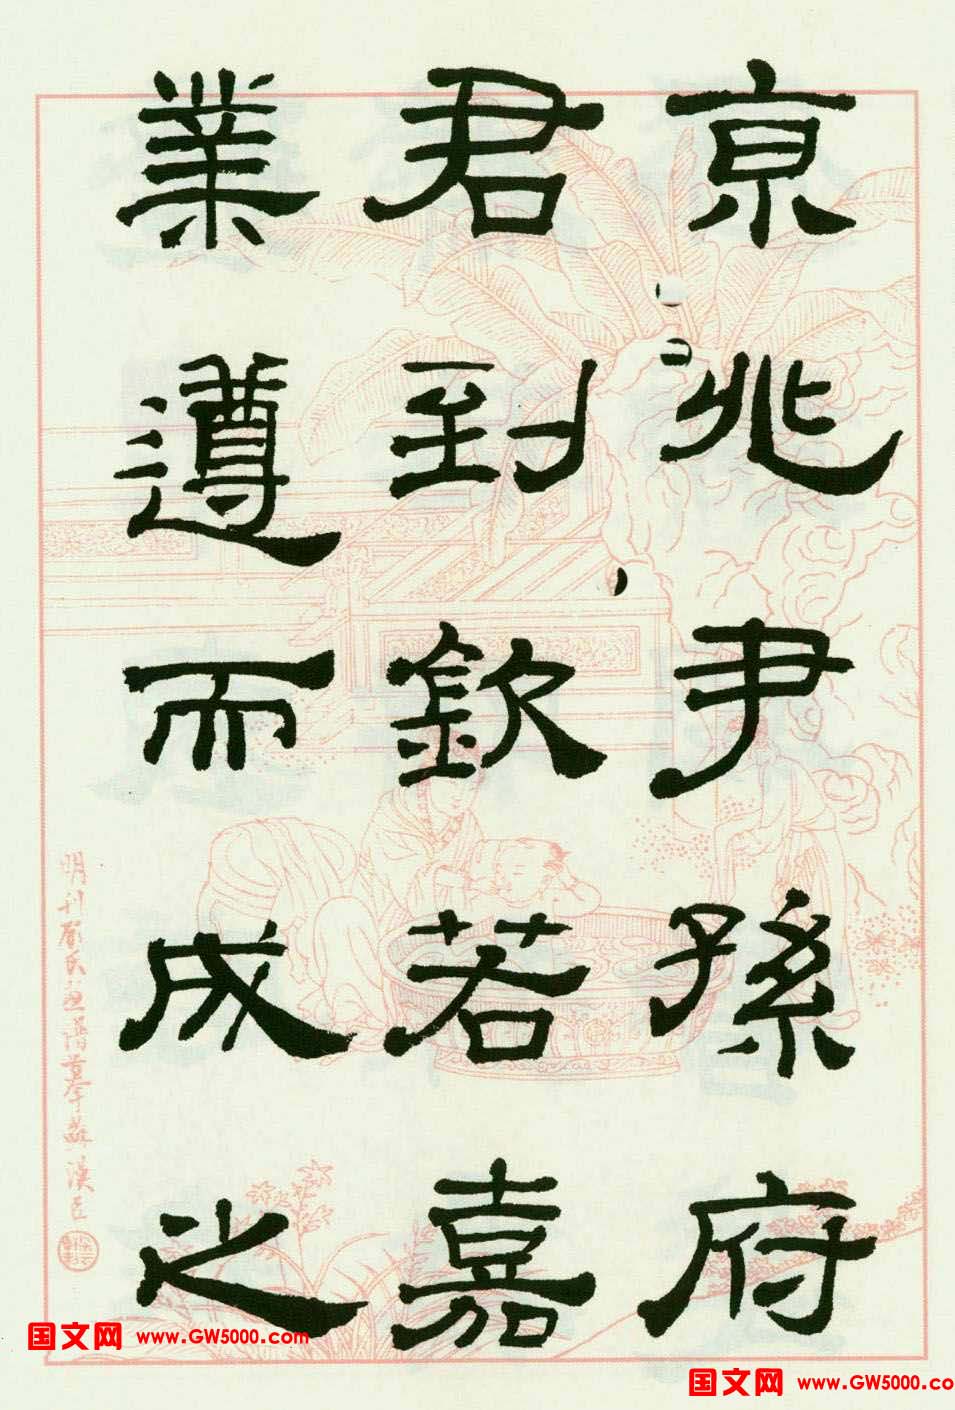 京兆尹孫府
君到欽若嘉
業遵而成之
明刊顧氏畫譜摹蘇漢臣
国文网 www.GW5000.com
国文网 www.GW5000.co